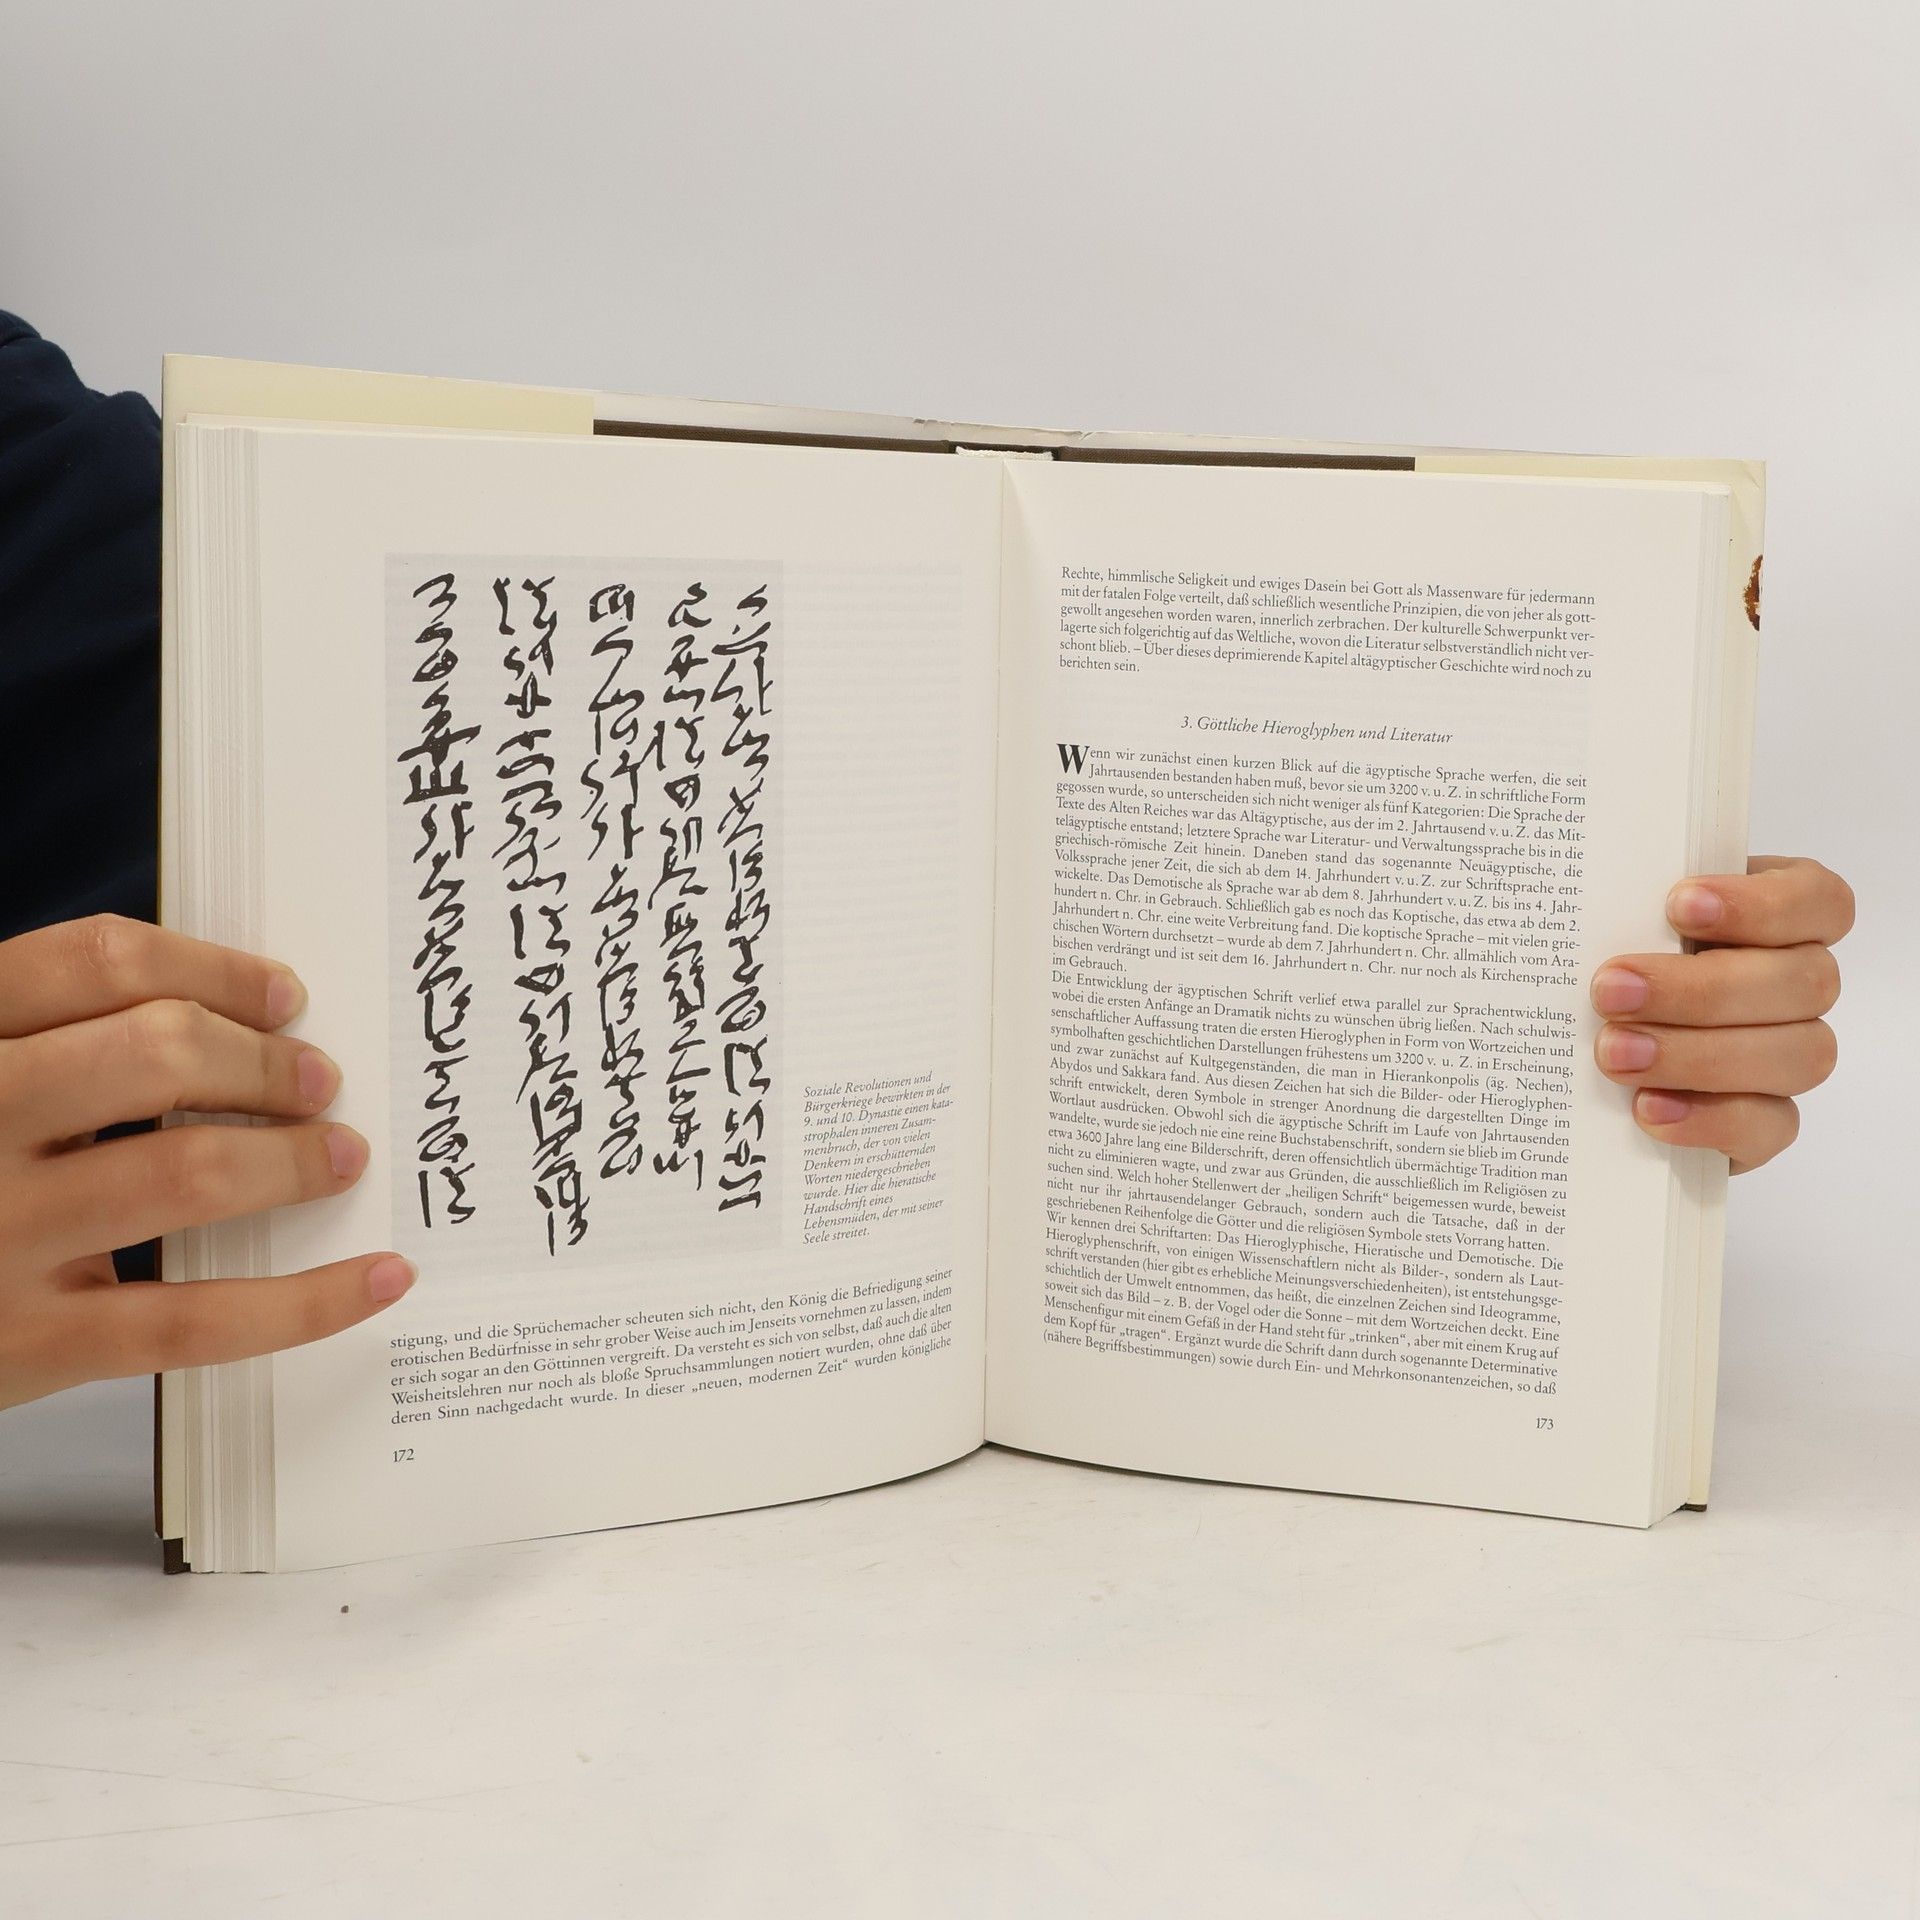 Soziale Revolutionen und
Bürgerkriege bewirkten in der
9. und 10. Dynastie einen kata-
strophalen inneren Zusam-
menbruch, der von vielen
Denkern in erschütternden
Worten niedergeschrieben
wurde. Hier die hieratische
Handschrift eines
Lebensmüden, der mit seiner
Seele streitet.
stigung, und die Sprüchemacher scheuten sich nicht, den König die Befriedigung seiner
erotischen Bedürfnisse in sehr grober Weise auch im Jenseits vornehmen zu lassen, indem
er sich sogar an den Göttinnen vergreift. Da versteht es sich von selbst, daß auch die alten
Weisheitslehren nur noch als bloße Spruchsammlungen notiert wurden, ohne daß über
deren Sinn nachgedacht wurde. In dieser „neuen, modernen Zeit“ wurden königliche
172
Rechte, himmlische Seligkeit und ewiges Dasein bei Gott als Massenware für jedermann
mit der fatalen Folge verteilt, daß schließlich wesentliche Prinzipien, die von jeher als gott-
gewollt angesehen worden waren, innerlich zerbrachen. Der kulturelle Schwerpunkt ver-
lagerte sich folgerichtig auf das Weltliche, wovon die Literatur selbstverständlich nicht ver-
schont blieb. – Über dieses deprimierende Kapitel altägyptischer Geschichte wird noch zu
berichten sein.
3. Göttliche Hieroglyphen und Literatur
Wenn wir zunächst einen kurzen Blick auf die ägyptische Sprache werfen, die seit
Jahrtausenden bestanden haben muß, bevor sie um 3200 v. u. Z. in schriftliche Form
gegossen wurde, so unterscheiden sich nicht weniger als fünf Kategorien: Die Sprache der
Texte des Alten Reiches war das Altägyptische, aus der im 2. Jahrtausend v. u. Z. das Mit-
telägyptische entstand; letztere Sprache war Literatur- und Verwaltungssprache bis in die
griechisch-römische Zeit hinein. Daneben stand das sogenannte Neuägyptische, die
Volkssprache jener Zeit, die sich ab dem 14. Jahrhundert v. u. Z. zur Schriftsprache ent-
wickelte. Das Demotische als Sprache war ab dem 8. Jahrhundert v. u. Z. bis ins 4. Jahr-
hundert n. Chr. in Gebrauch. Schließlich gab es noch das Koptische, das etwa ab dem 2.
Jahrhundert n. Chr. eine weite Verbreitung fand. Die koptische Sprache – mit vielen grie-
chischen Wörtern durchsetzt – wurde ab dem 7. Jahrhundert n. Chr. allmählich vom Ara-
bischen verdrängt und ist seit dem 16. Jahrhundert n. Chr. nur noch als Kirchensprache
im Gebrauch.
Die Entwicklung der ägyptischen Schrift verlief etwa parallel zur Sprachentwicklung,
wobei die ersten Anfänge an Dramatik nichts zu wünschen übrig ließen. Nach schulwis-
senschaftlicher Auffassung traten die ersten Hieroglyphen in Form von Wortzeichen und
symbolhaften geschichtlichen Darstellungen frühestens um 3200 v. u. Z. in Erscheinung,
und zwar zunächst auf Kultgegenständen, die man in Hierankonpolis (äg. Nechen),
Abydos und Sakkara fand. Aus diesen Zeichen hat sich die Bilder- oder Hieroglyphen-
schrift entwickelt, deren Symbole in strenger Anordnung die dargestellten Dinge im
Wortlaut ausdrücken. Obwohl sich die ägyptische Schrift im Laufe von Jahrtausenden
wandelte, wurde sie jedoch nie eine reine Buchstabenschrift, sondern sie blieb im Grunde
etwa 3600 Jahre lang eine Bilderschrift, deren offensichtlich übermächtige Tradition man
nicht zu eliminieren wagte, und zwar aus Gründen, die ausschließlich im Religiösen zu
suchen sind. Welch hoher Stellenwert der „heiligen Schrift“ beigemessen wurde, beweist
nicht nur ihr jahrtausendelanger Gebrauch, sondern auch die Tatsache, daß in der
geschriebenen Reihenfolge die Götter und die religiösen Symbole stets Vorrang hatten.
Wir kennen drei Schriftarten: Das Hieroglyphische, Hieratische und Demotische. Die
Hieroglyphenschrift, von einigen Wissenschaftlern nicht als Bilder-, sondern als Laut-
schrift verstanden (hier gibt es erhebliche Meinungsverschiedenheiten), ist entstehungsge-
schichtlich der Umwelt entnommen, das heißt, die einzelnen Zeichen sind Ideogramme,
soweit sich das Bild – z. B. der Vogel oder die Sonne – mit dem Wortzeichen deckt. Eine
Menschenfigur mit einem Gefäß in der Hand steht für „trinken“, aber mit einem Krug auf
dem Kopf für „tragen“. Ergänzt wurde die Schrift dann durch sogenannte Determinative
(nähere Begriffsbestimmungen) sowie durch Ein- und Mehrkonsonantenzeichen, so daß
173